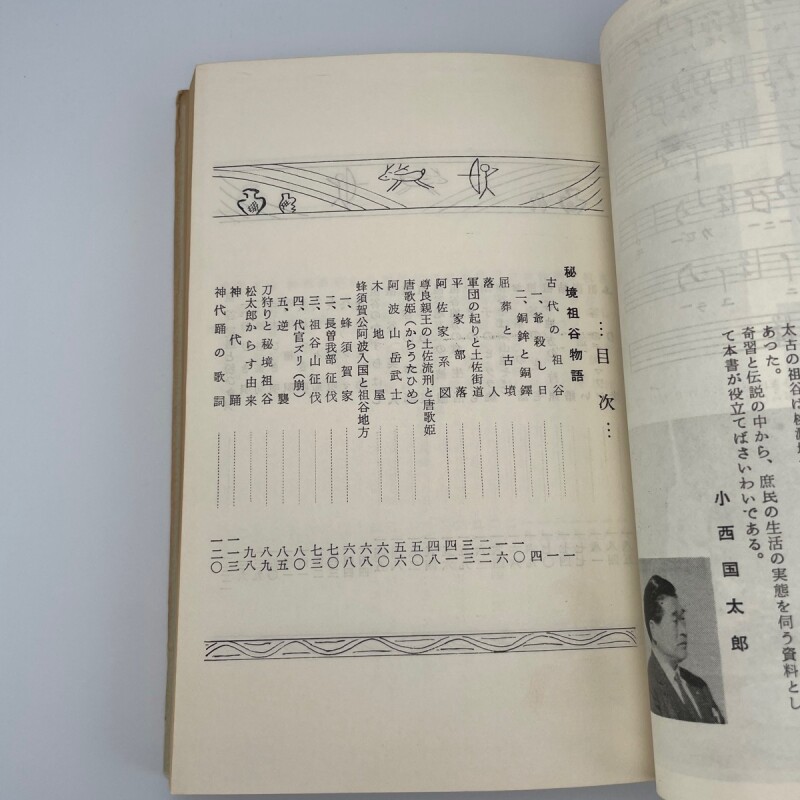 太古の祖谷は
あった。
奇習と伝説の中から、庶民の生活の実態を伺う資料とし
て本書が役立てばさいわいである。
小西国太郎
…目次…
秘境祖谷物語
古代の祖谷………一
一、爺殺し日………一
二、銅鉾と銅鐸………四
屈葬と古墳………一〇
落人………一六
軍団の起りと土佐街道………二二
平家部落………三三
阿佐家系図………四一
尊良親王の土佐流刑と唐歌姫………四八
唐歌姫(からうたひめ)………五〇
阿波山岳武士………五六
木地屋………六〇
蜂須賀公阿波入国と祖谷地方………六八
一、蜂須賀家………六八
二、長曽我部征伐………七〇
三、祖谷山征伐………七三
四、代官ズリ(崩)………八〇
五、逆襲………八五
刀狩りと秘境祖谷………八九
松太郎からす由来………九八
神代踊………一一三
神代踊の歌詞………一二〇